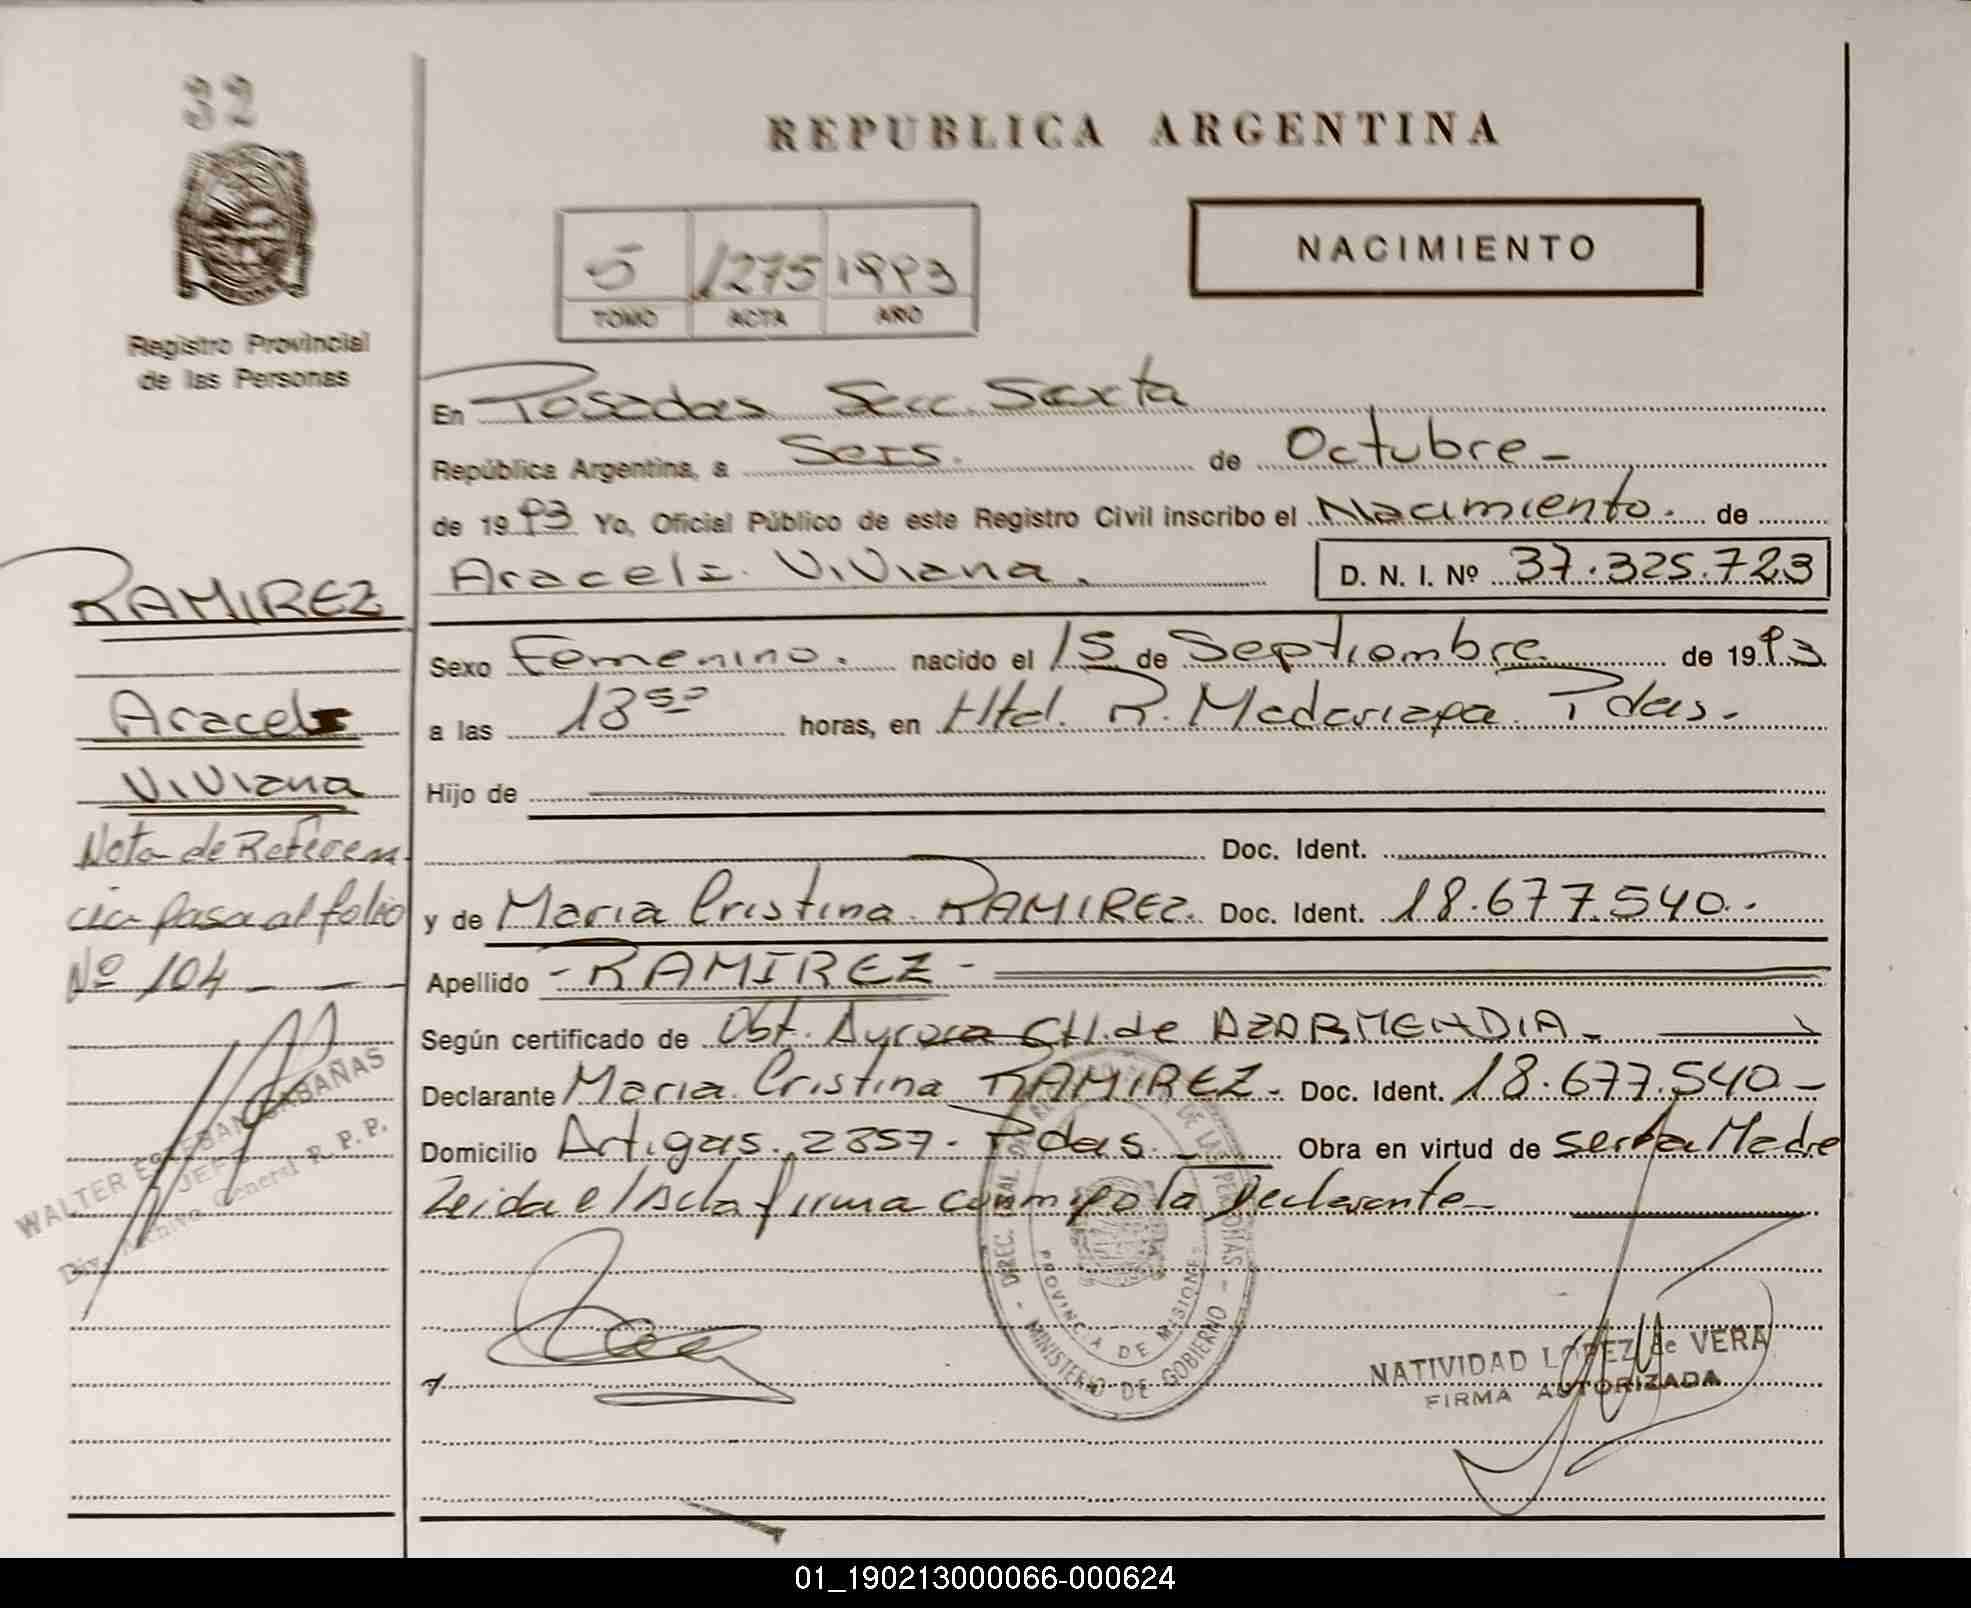 32
REPUBLICA ARGENTINA
NACIMIENTO
5 1275 1993
TOMO ACTA AÑO
Registro Provincial
de las Personas
En Posadas Secc. Sexta
República Argentina, a Seis. de Octubre -
de 1993 Yo, Oficial Público de este Registro Civil inscribo el Nacimiento. de
Araceli Viviana. D. N. I. Nº 37.325.723
Sexo Femenino. nacido el 15 de Septiembre de 1993
a las 18 50 horas, en Htal. R. Madariaga Pdas.
Hijo de
Doc. Ident.
y de Maria Cristina RAMIREZ. Doc. Ident. 18.677.540.-
Apellido - RAMIREZ -
Según certificado de Obt. Aurora de
Declarante Maria Cristina RAMIREZ - Doc. Ident. 18.677.540 -
Domicilio Artigas 2357 - Pdas. - Obra en virtud de ser la Madre
Leida el Acta firma conmigo la Declarante -
RAMIREZ
Araceli
Viviana
Nota de Referen
cia pasa al folio
Nº 104 - -
WALTER ESTEBAN CABAÑAS
JEFE
Div. Archivo General R. P. P.
DIREC. GRAL. DE LAS PERSONAS - MINISTERIO DE GOBIERNO -
PROVINCIA DE MISIONES
NATIVIDAD LOPEZ de VERA
FIRMA AUTORIZADA
01_190213000066-000624